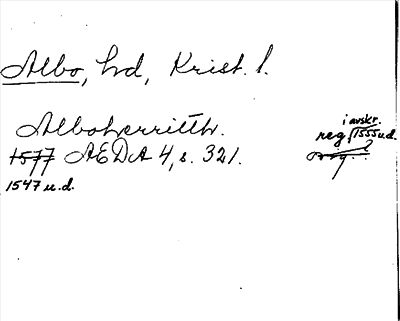 Albo, hd, Krist. l.
Albohærritth.
1577 AEDA 4, s. 321.
1547 u.d.
i avskr.
reg. 1555 u.d.
orig. ?